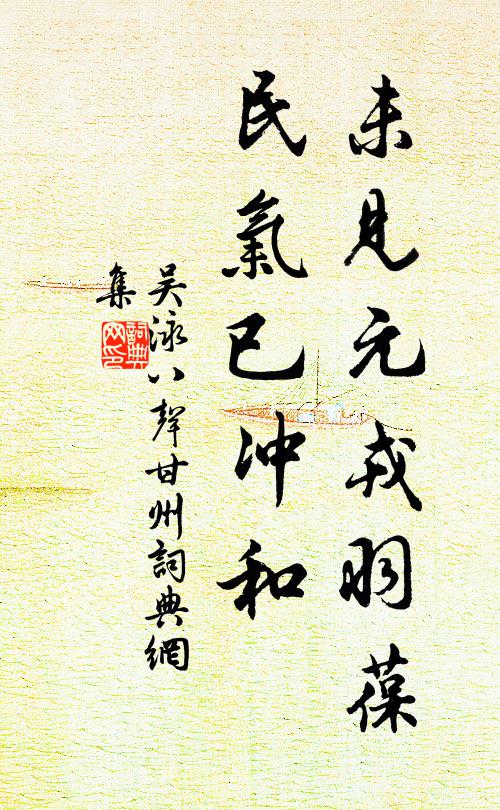 未見元戎羽葆
民氣已沖和
吴泳八聲甘州詞典網
集
詞典
网印